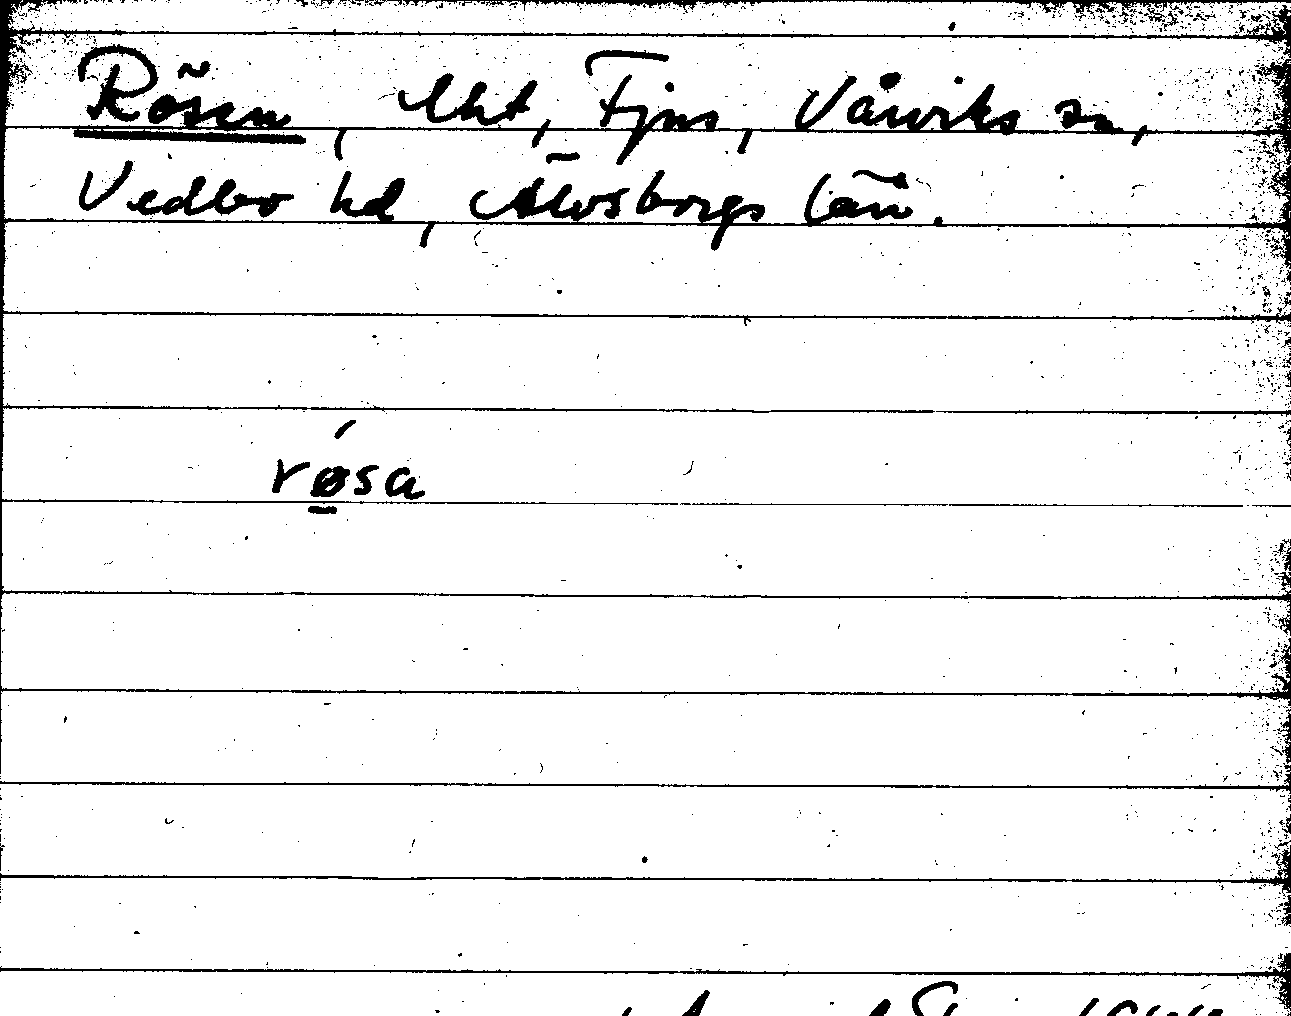 Rösen, lht, Fjus, Vårviks sn,
Vedbo hd, Älvsborgs län.
røsa